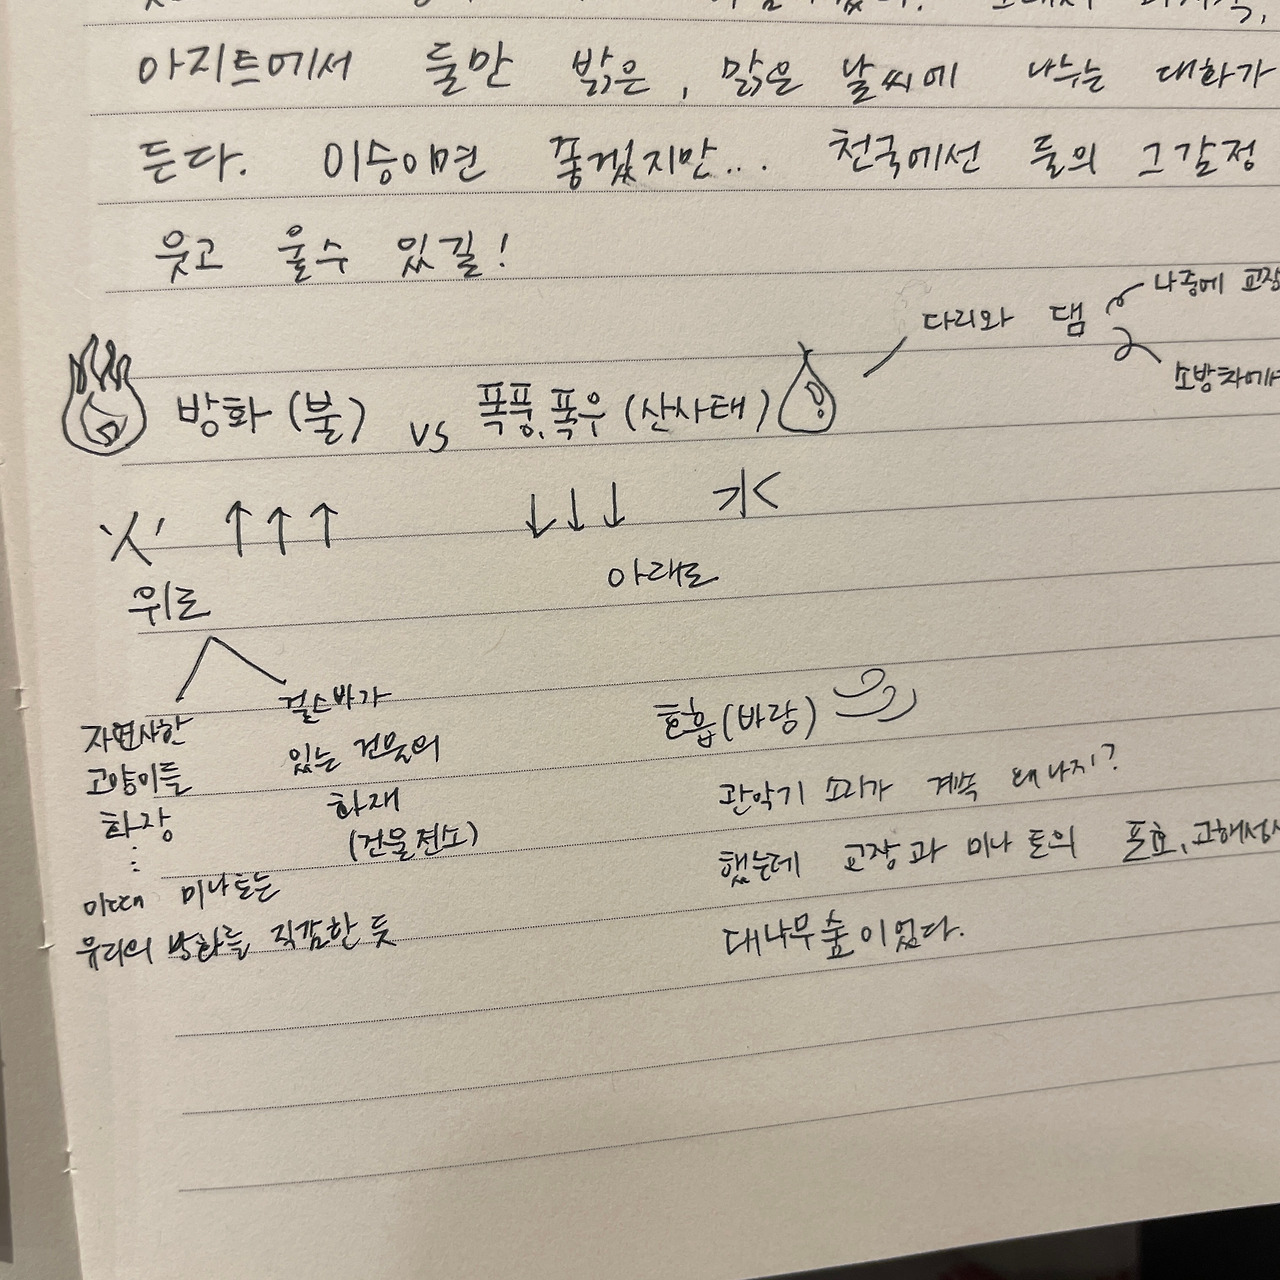 아지트에서 둘만 밝은, 맑은 날씨에 나누는 대화가
든다. 이승이면 좋겠지만... 천국에선 둘의 그 감정
웃고 울수 있길!
다리와 댐
나중에 교장
소방차에서
방화(불) vs 폭풍,폭우(산사태)
위로
아래로
자연사한
고양이들
화장
⋮
이때 미나토는
유리의 방화를 직감한 듯
걸스바가
있는 건물의
화재
(건물전소)
호흡(바람)
관악기 소리가 계속 왜 나지?
했는데 교장과 미나토의 포효, 고해성사
대나무숲이었다.